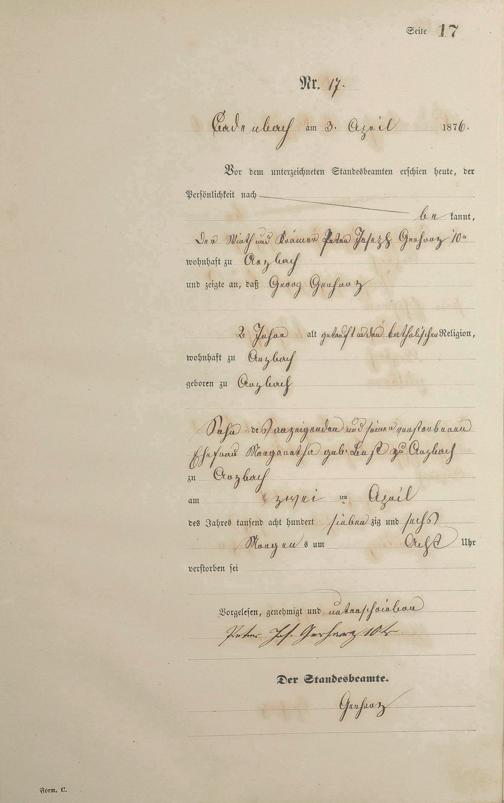 Seite 17
Nr. 17.
Cadenbach am 3. April 1876.
Vor dem unterzeichneten Standesbeamten erschien heute, der
Persönlichkeit nach
be kannt,
der Wirth und Krämer Peter Joseph Gerharz 10r
wohnhaft zu Arzbach
und zeigte an, daß Georg Gerharz
2 Jahre alt getauft in der katholischen Religion,
wohnhaft zu Arzbach
geboren zu Arzbach
Sohn des Anzeigenden und seiner verstorbenen
Ehefrau Margaretha geb. zu Arzbach
zu Arzbach
am zwei ten April
des Jahres tausend acht hundert sieben zig und sechs
Morgen s um Acht Uhr
verstorben sei
Vorgelesen, genehmigt und unterschrieben
Peter Jos. Gerharz 10r
Der Standesbeamte.
Gerharz
Form. C.